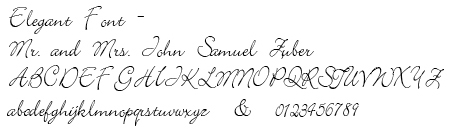 Elegant Font -
Mr. and Mrs. John Samuel Zuber
ABCDEFGHIJKLMNOPQRSTUVWXYZ
abcdefghijklmnopqrstuvwxyz & 0123456789